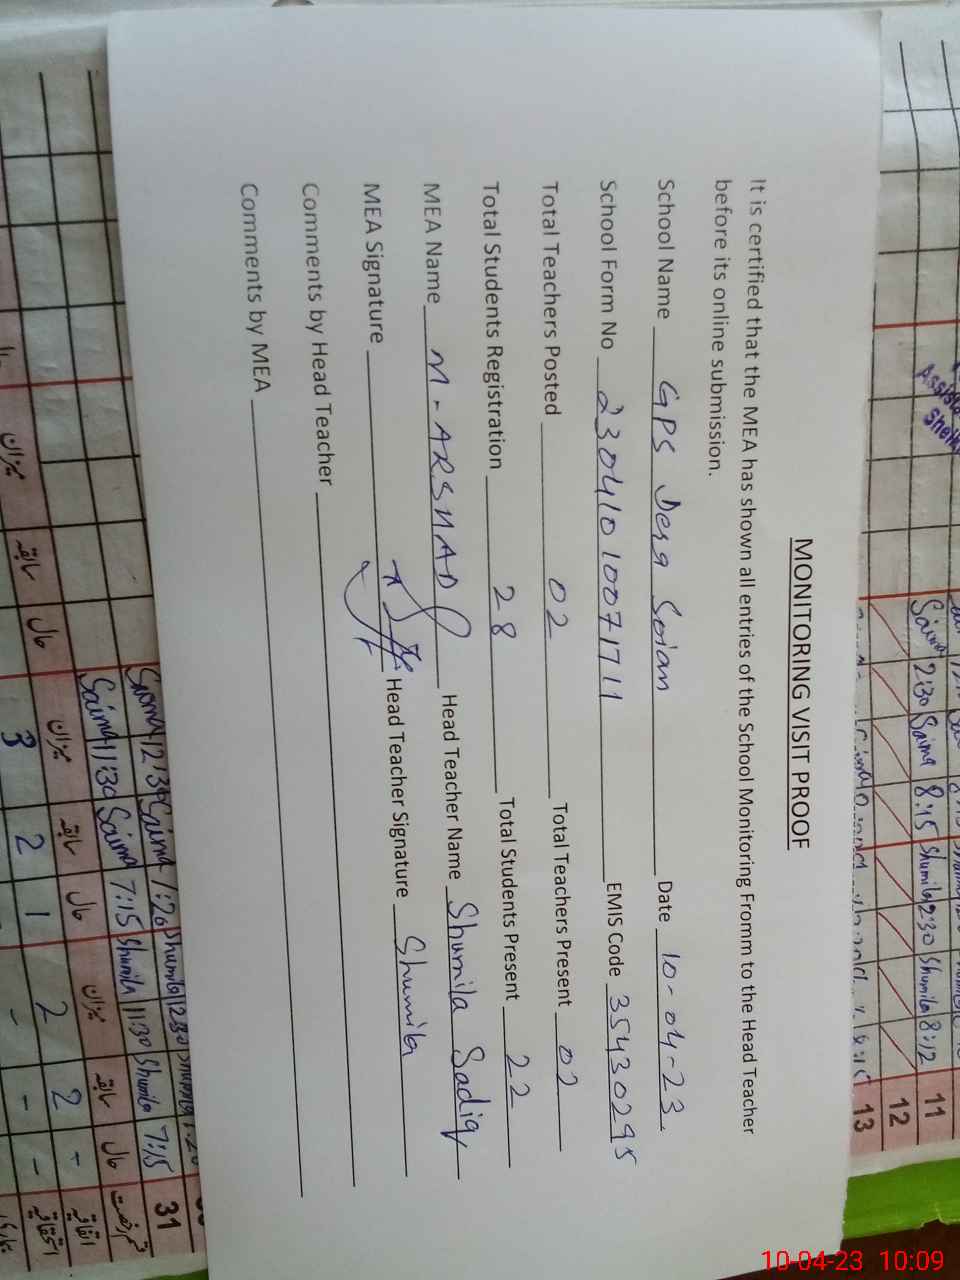 MONITORING VISIT PROOF
It is certified that the MEA has shown all entries of the School Monitoring Fromm to the Head Teacher
before its online submission.
School Name GPS Dera Soian Date 10-04-23.
School Form No 23041010071711 EMIS Code 35430295
Total Teachers Posted 02 Total Teachers Present 02
Total Students Registration 28 Total Students Present 22
MEA Name M-ARSHAD Head Teacher Name Shumila Sadiq
MEA Signature Head Teacher Signature Shumila
Comments by Head Teacher
Comments by MEA
Saima 2:30 Saima 8:15 Shumila 2:30 Shumila 8:12 11
12
13
Saima 12:30 Saima 7:20 Shumila 12:30
Saima 11:30 Saima 7:15 Shumila 11:30 Shumila 7:15 31
حال سابقہ میزان حال سابقہ میزان حال سابقہ میزان
2 2 - اتفاقیہ
3 2 1 - - - استحقاقیہ
10-04-23 10:09